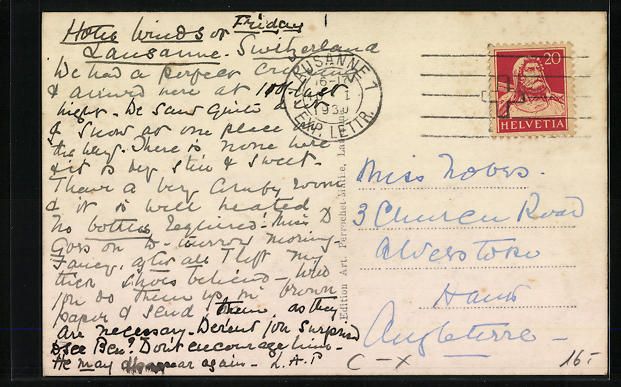 Friday!
Hotel Windsor
Lausanne. Switzerland
We had a perfect crossing
& arrived here at 10 last
night. We saw quite a lot
of snow at one place on
the way. There is none here
& it is very still & sweet.
I have a very comfy room
& it is well heated
No bottles required! Miss D
goes on to-morrow morning.
Fancy, after all I left my
thick shoes behind - will
you do them up in brown
paper & send them, as they
are necessary. Weren't you surprised
to see Ben? Don't encourage him -
He may disappear again - L.A.P
LAUSANNE 1
1930
EXP. LETTR.
20
HELVETIA
Edition Art. Perrochet-Matile, Lausanne
Miss Nobes.
3 Church Road
Alverstoke
Hants
Angleterre -
C - X
16.-